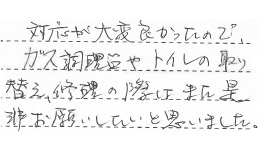 対応が大変良かったので、
ガス調理台やトイレの取り
替え、修理の際は、また是
非お願いしたいと思いました。